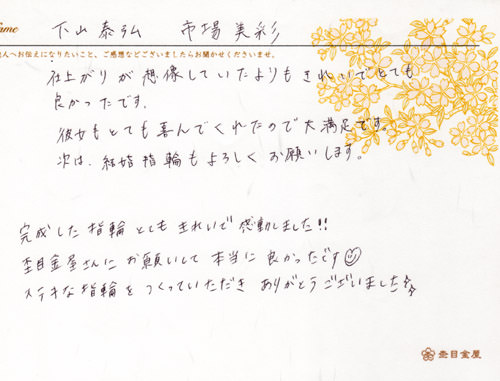 ame 下山 泰弘 市場 美彩
人へお伝えになりたいこと、ご感想などございましたらお聞かせくださいませ。
仕上がりが想像していたよりもきれいでとても
良かったです.
彼女もとても喜んでくれたので大満足です。
次は、結婚指輪もよろしくお願いします。
完成した指輪とてもきれいで感動しました!!
杢目金屋さんにお願いして本当に良かったです☺
ステキな指輪をつくっていただきありがとうございました
杢目金屋